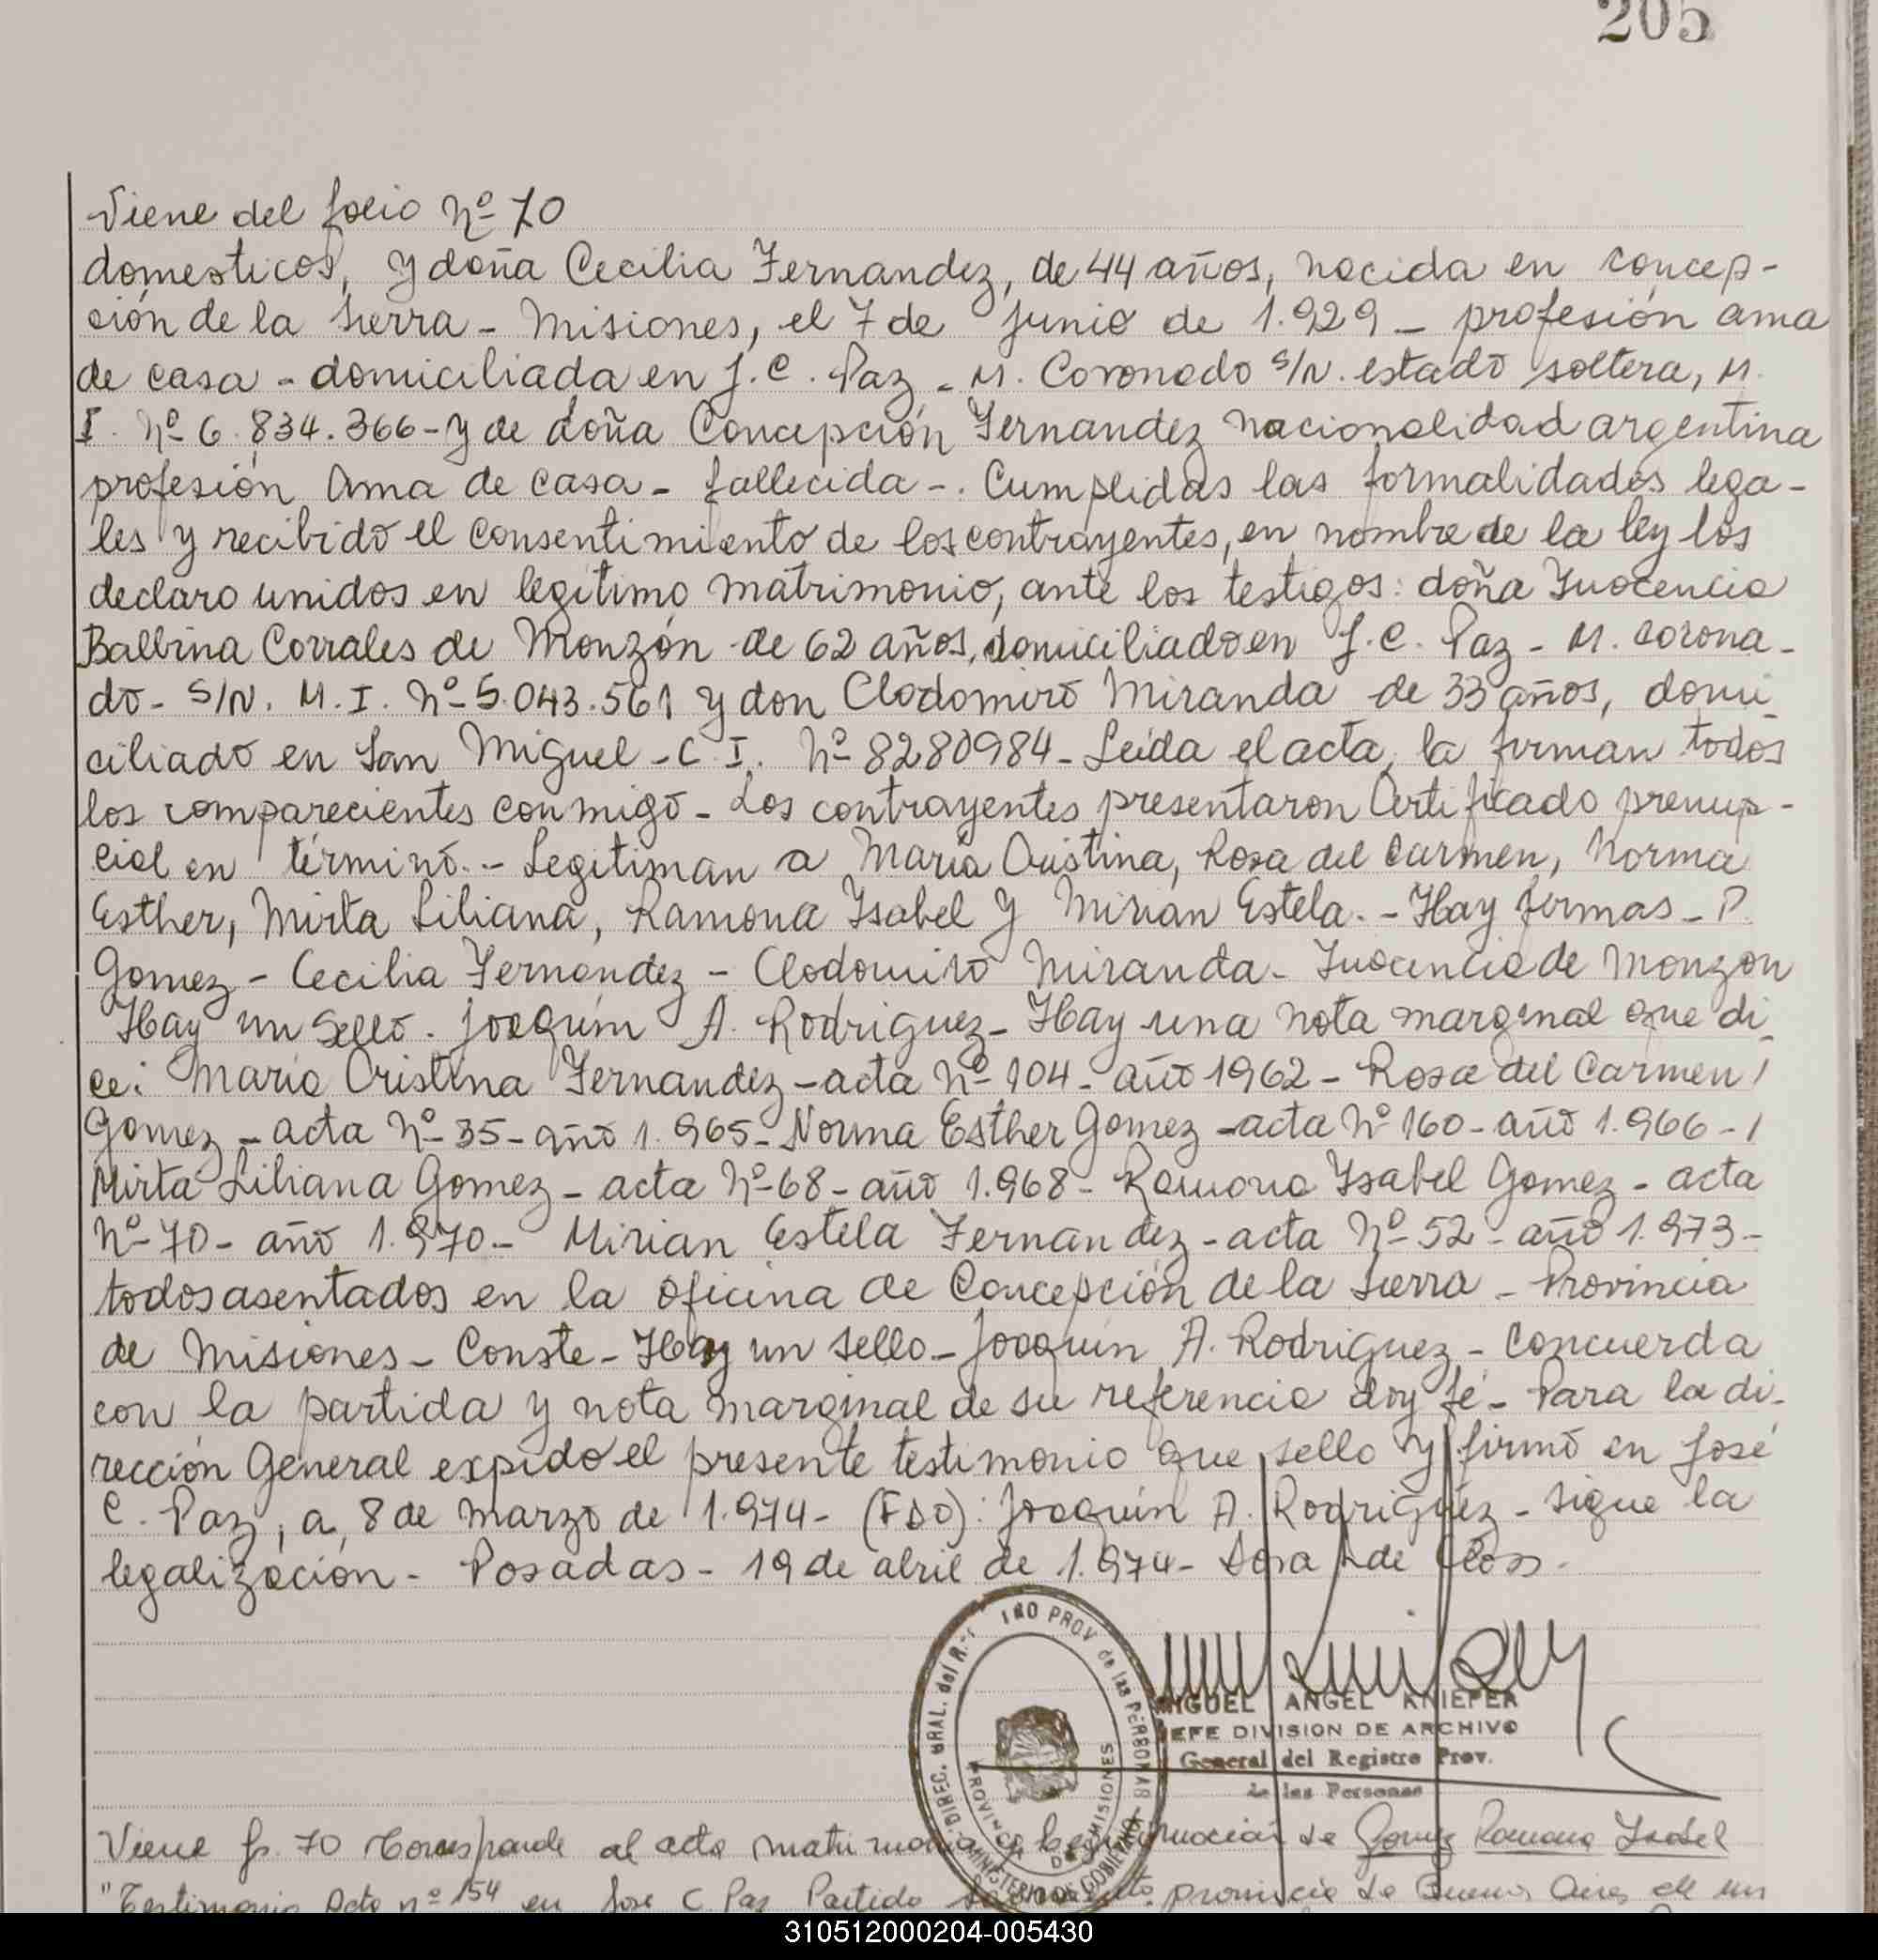 205
Viene del folio Nº 70
domesticos, y doña Cecilia Fernandez, de 44 años, nacida en concep-
ción de la Sierra - Misiones, el 7 de Junio de 1.929 - profesión ama
de casa - domiciliada en J. C. Paz - M. Coronado S/N. estado soltera, M.
I. Nº 6.834.366 - y de doña Concepción Fernandez nacionalidad argentina
profesión Ama de casa - fallecida -. Cumplidas las formalidades lega-
les y recibido el consentimiento de los contrayentes, en nombre de la ley los
declaro unidos en legítimo matrimonio, ante los testigos: doña Inocencia
Balbina Corrales de Monzón de 62 años, domiciliado en J. C. Paz - M. Corona-
do - S/N. M. I. Nº 5.043.561 y don Clodomiro Miranda de 33 años, domi
ciliado en San Miguel - C. I. Nº 8280984 - Leída el acta, la firman todos
los comparecientes conmigo - Los contrayentes presentaron Certificado prenup-
cial en término. - Legitiman a María Cristina, Rosa del Carmen, Norma
Esther, Mirta Liliana, Ramona Isabel y Mirian Estela. - Hay firmas - P.
Gomez - Cecilia Fernandez - Clodomiro Miranda - Inocencia de Monzon
Hay un Sello - Joaquím A. Rodriguez - Hay una nota marginal que di
ce: María Cristina Fernandez - acta Nº 104 - año 1962 - Rosa del Carmen /
Gomez - acta Nº 35 - año 1.965 - Norma Esther Gomez - acta Nº 160 - año 1.966 - /
Mirta Liliana Gomez - acta Nº 68 - año 1.968 - Ramona Isabel Gomez - acta
Nº 70 - año 1.970 - Mirian Estela Fernandez - acta Nº 52 - año 1.973 -
todos asentados en la oficina de Concepción de la Sierra - Provincia
de Misiones - Conste - Hay un sello - Joaquín A. Rodriguez - Concuerda
con la partida y nota marginal de su referencia doy fé - Para la di-
rección General expido el presente testimonio que sello y firmo en José
C. Paz, a 8 de Marzo de 1.974 - (FDO): Joaquín A. Rodriguez - Sigue la
legalización - Posadas - 19 de abril de 1.974 - de
DIREC. GRAL. del PROV de las PERSONAS
MINISTERIO DE GOBIERNO
PROVINCIA DE MISIONES
MIGUEL ANGEL KNIEPER
JEFE DIVISION DE ARCHIVO
General del Registro Prov.
de las Personas
Viene fs. 70 Corresponde al acta matrimonial de Gomez Ramona Isabel
"Testimonio Acta nº 154 en Jose C. Paz Partido provincia de Buenos Aires
310512000204-005430